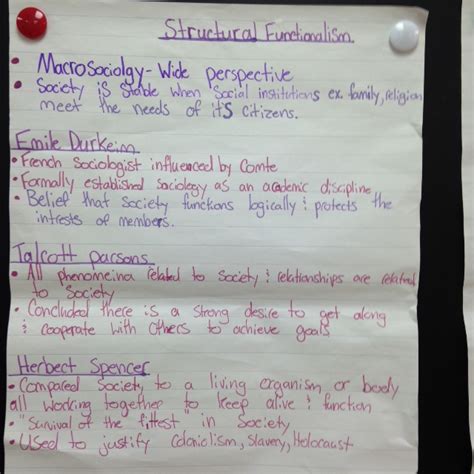 Structural Functionalism
• Macrosociolgy - Wide perspective
• Society is stable when social institutions ex. family, religion
meet the needs of it's citizens.
Emile Durkeim
• French Sociologist influenced by Comte
• Formally established sociology as an academic discipline
• Belief that society functions logically & protects the
intrests of members.
Talcott parsons
• All phenomeina related to society & relationships are related
to Society
• Concluded there is a strong desire to get along
& cooperate with others to achieve goals
Herbect Spencer
• Compared Society to a living organism or body
all working together to keep alive & function
• "Survival of the fittest" in Society
• Used to justify Colonialism, Slavery, Holocaust